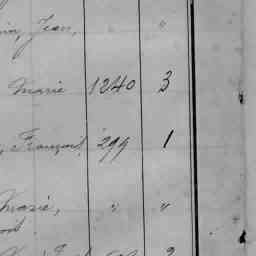 Jean, " "
Marie 1240 3
François, 299 1
Marie, " "